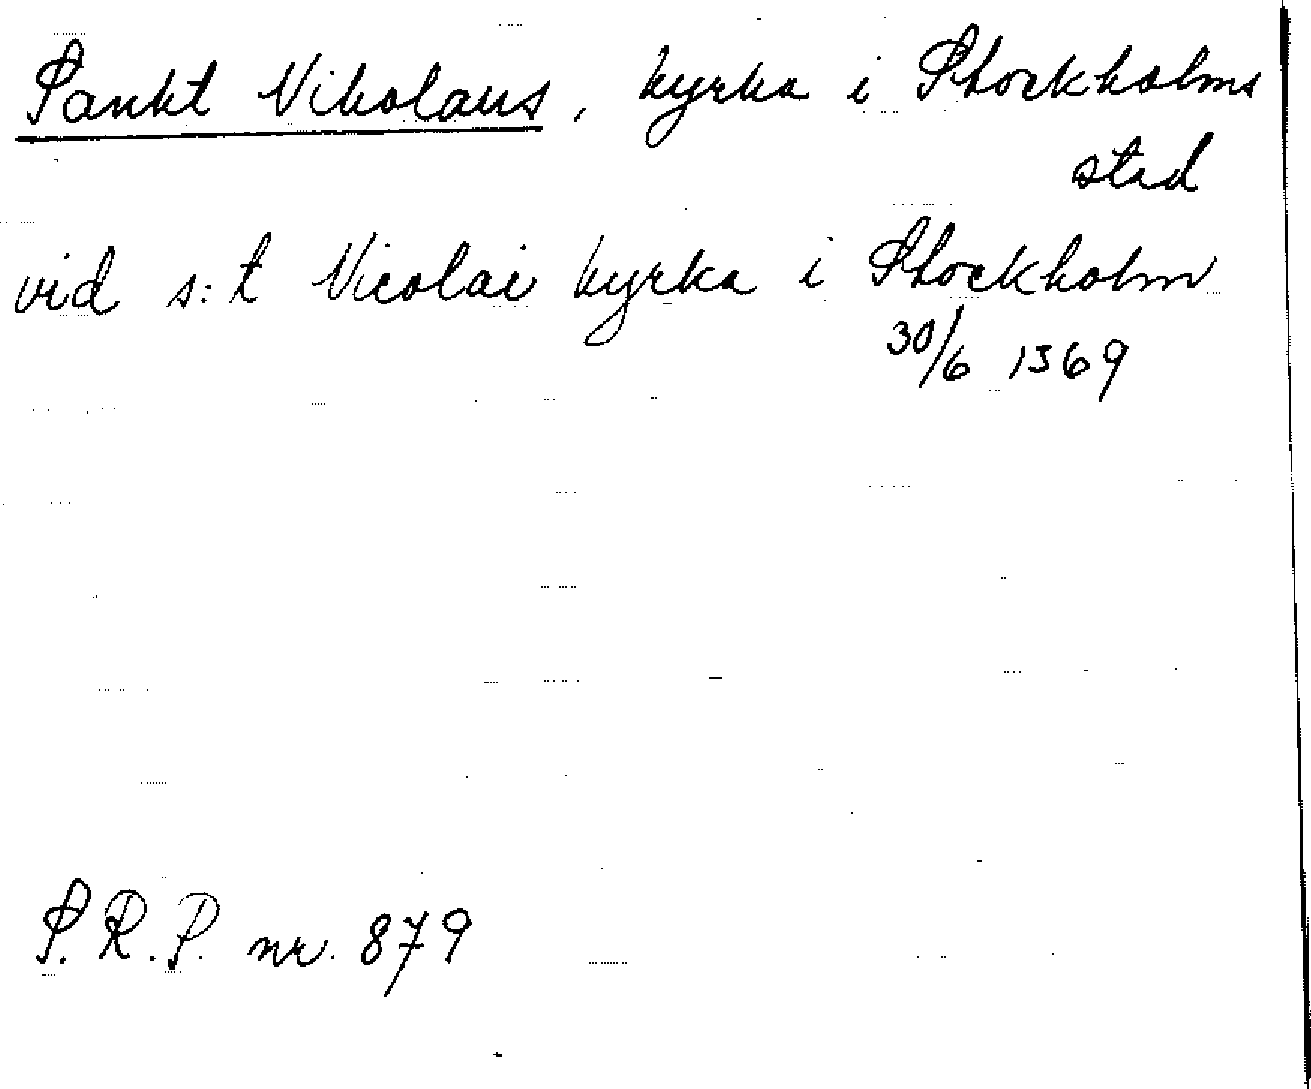 Sankt Nikolaus, kyrka i Stockholms
stad
vid s:t Nicolai kyrka i Stockholm
30/6 1369
S.R.P. nr. 879